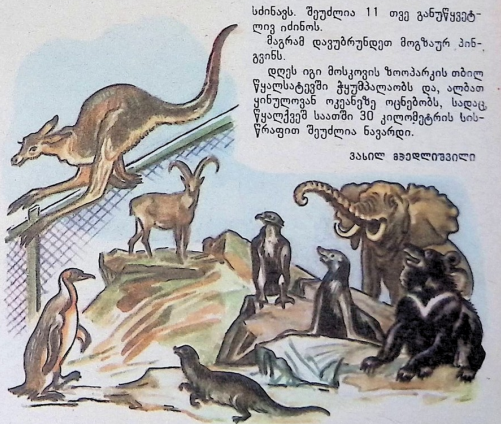 სძინავს. შეუძლია 11 თვე განუწყვეტ-
ლივ იძინოს.
მაგრამ დავუბრუნდეთ მოგზაურ პინ-
გვინს.
დღეს იგი მოსკოვის ზოოპარკის თბილ
წყალსატევში ჭყუმპალაობს და, ალბათ
ყინულოვან ოკეანეზე ოცნებობს, სადაც
წყალქვეშ საათში 30 კილომეტრის სის-
წრაფით შეუძლია ნავარდი.
ვახილ მჭედლიშვილი